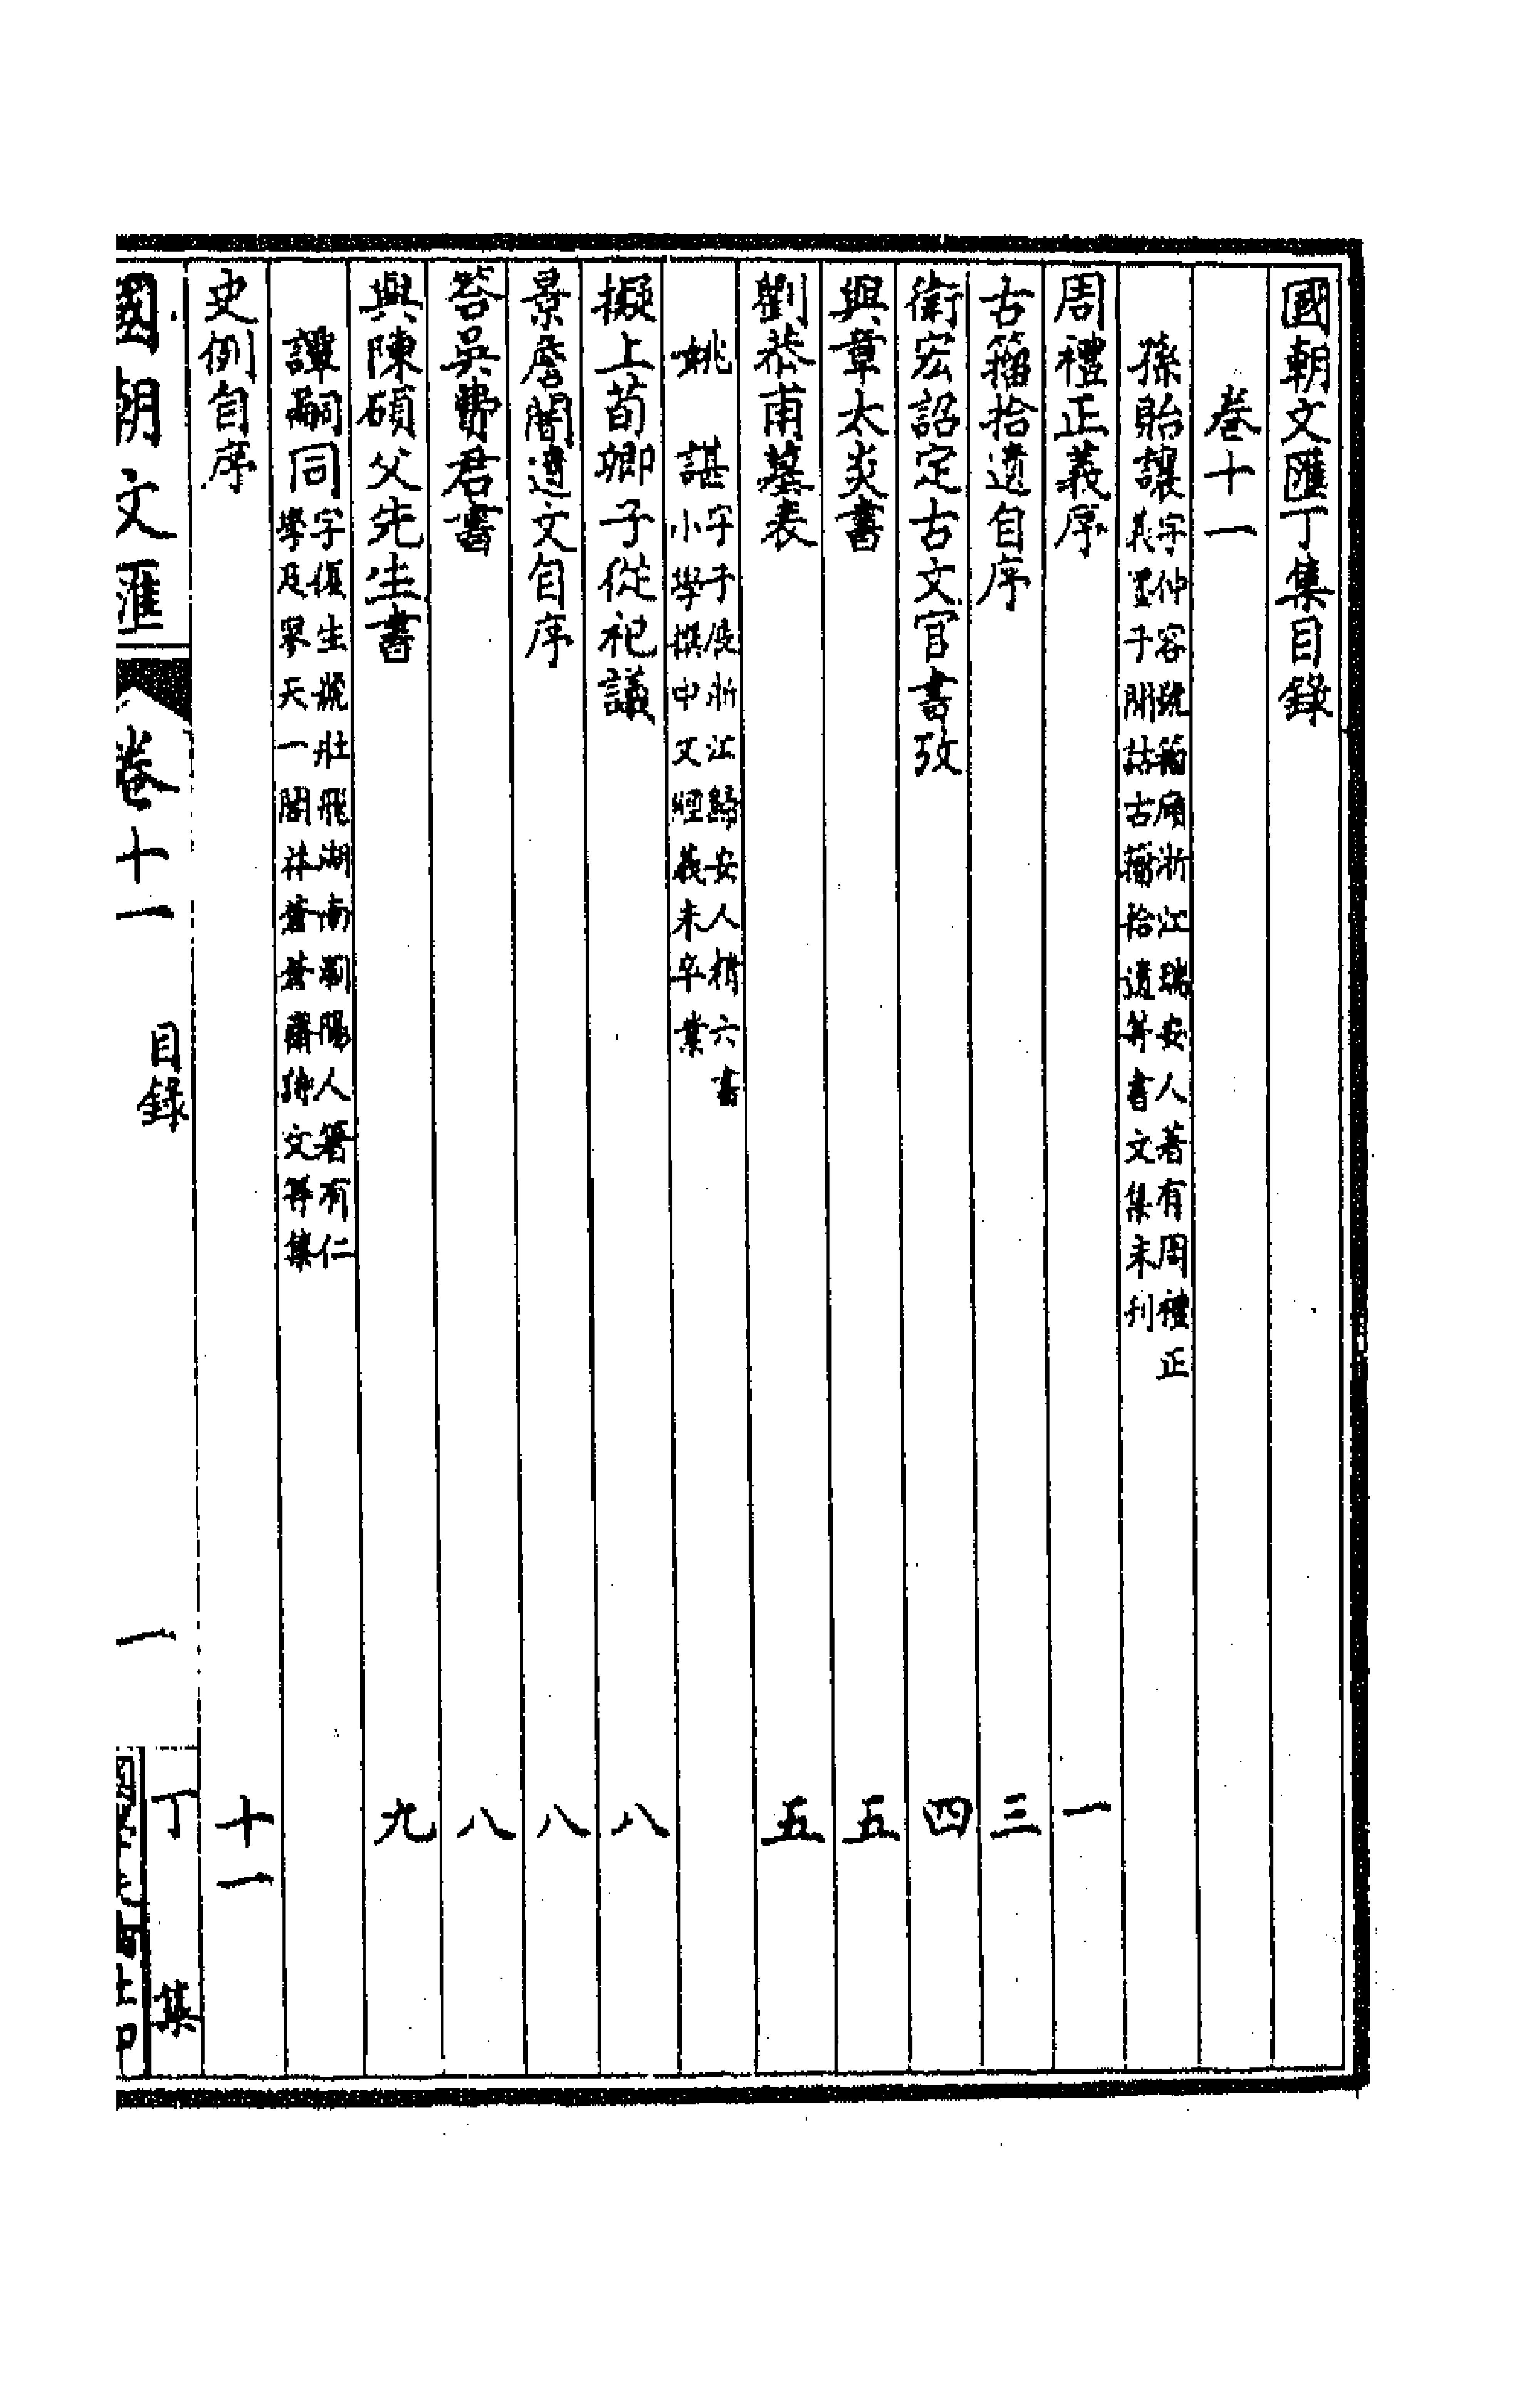 國朝文匯丁集目錄
卷十一
孫詒讓字仲容號籀廎浙江瑞安人著有周禮正
義墨子閒詁古籀拾遺等書文集未刊
周禮正義序 一
古籀拾遺自序 三
衛宏詔定古文官書攷 四
與章太炎書 五
劉恭甫墓表 五
姚諶字子展浙江歸安人精六書
小學撰中文經義未卒業
擬上荀卿子從祀議 八
景詹闇遺文自序 八
答吳費君書 八
與陳碩父先生書 九
譚嗣同字復生號壯飛湖南瀏陽人箸有仁
學及寥天一閣莽蒼蒼齋詩文等集
史例自序 十一
國朝文匯 卷十一 目錄 一 丁集